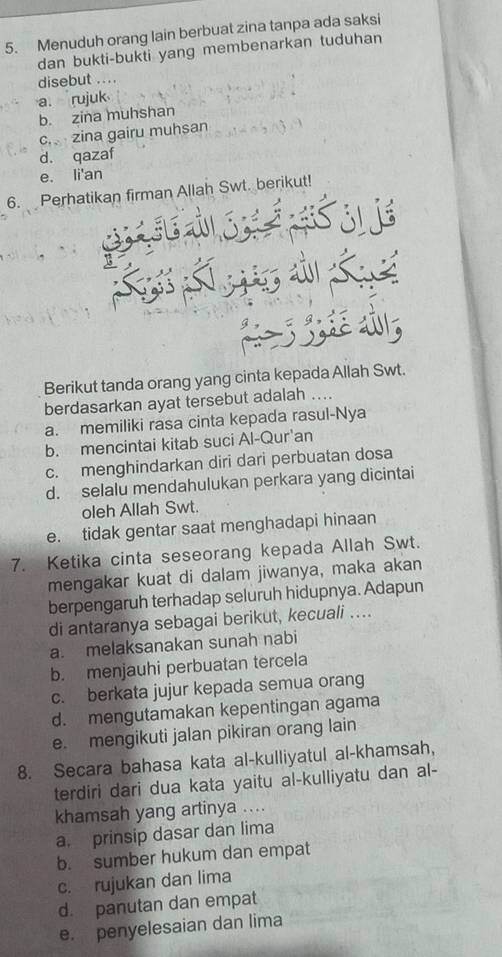 5. Menuduh orang lain berbuat zina tanpa ada saksi
dan bukti-bukti yang membenarkan tuduhan
disebut ....
a. rujuk
b. zina muhshan
c. zina gairu muhsan
d. qazaf
e. li'an
6. Perhatikan firman Allah Swt. berikut!
قُلْ اِنْ كُنْتُمْ تُحِبُّوْنَ اللّٰهَ فَاتَّبِعُوْنِيْ
يُحْبِبْكُمُ اللّٰهُ وَيَغْفِرْ لَكُمْ ذُنُوْبَكُمْ ۗ
وَاللّٰهُ غَفُوْرٌ رَّحِيْمٌ
Berikut tanda orang yang cinta kepada Allah Swt.
berdasarkan ayat tersebut adalah ....
a. memiliki rasa cinta kepada rasul-Nya
b. mencintai kitab suci Al-Qur'an
c. menghindarkan diri dari perbuatan dosa
d. selalu mendahulukan perkara yang dicintai
oleh Allah Swt.
e. tidak gentar saat menghadapi hinaan
7. Ketika cinta seseorang kepada Allah Swt.
mengakar kuat di dalam jiwanya, maka akan
berpengaruh terhadap seluruh hidupnya. Adapun
di antaranya sebagai berikut, kecuali ....
a. melaksanakan sunah nabi
b. menjauhi perbuatan tercela
c. berkata jujur kepada semua orang
d. mengutamakan kepentingan agama
e. mengikuti jalan pikiran orang lain
8. Secara bahasa kata al-kulliyatul al-khamsah,
terdiri dari dua kata yaitu al-kulliyatu dan al-
khamsah yang artinya ....
a. prinsip dasar dan lima
b. sumber hukum dan empat
c. rujukan dan lima
d. panutan dan empat
e. penyelesaian dan lima